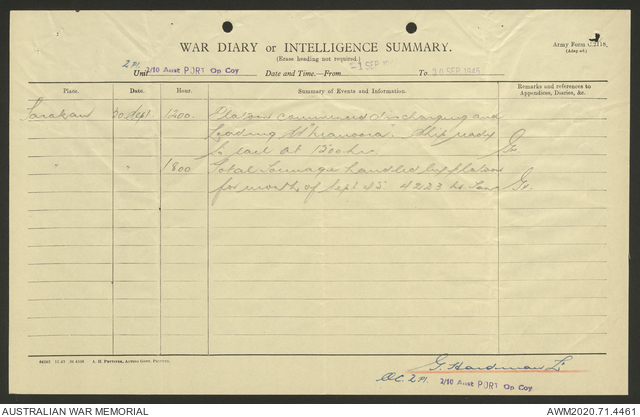 WAR DIARY or INTELLIGENCE SUMMARY.
(Erase heading not required.)
Army Form C.2118,
(Adap ed).
2 Pl. Unit 2/10 Aust PORT Op Coy Date and Time.—From 1 SEP To 30 SEP 1945
Place. Date. Hour. Summary of Events and Information. Remarks and references to
Appendices, Diaries, &c.
Tarakan 30 Sept 1200. Platoon commenced discharging and
loading Ship ready
to sail at 1500 hrs.
" " 1800 Total Tonnage handled by platoon
for month of Sept 45 4223
A. H. PETTIFER, ACTING GOVT. PRINTER.
G. Hardman Lt
OC. 2 Pl. 2/10 Aust PORT Op Coy
AUSTRALIAN WAR MEMORIAL
AWM2020.71.4461